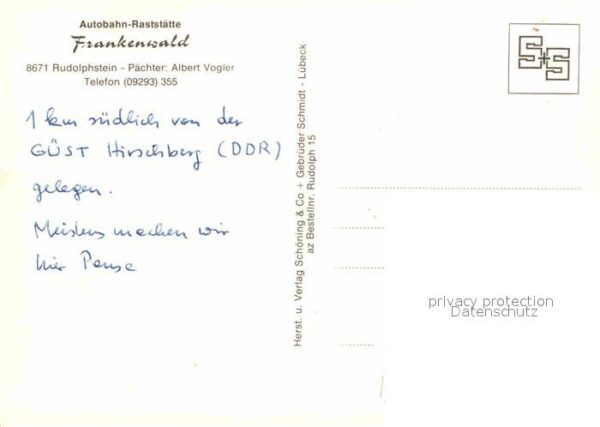 Autobahn-Raststätte
Frankenwald
8671 Rudolphstein - Pächter: Albert Vogler
Telefon (09293) 355
1 km südlich von der
GÜST Hirschberg (DDR)
gelegen.
Meistens machen wir
hier Pause
Herst. u. Verlag Schöning & Co + Gebrüder Schmidt - Lübeck
az Bestellnr. Rudolph 15
S+S
privacy protection
Datenschutz